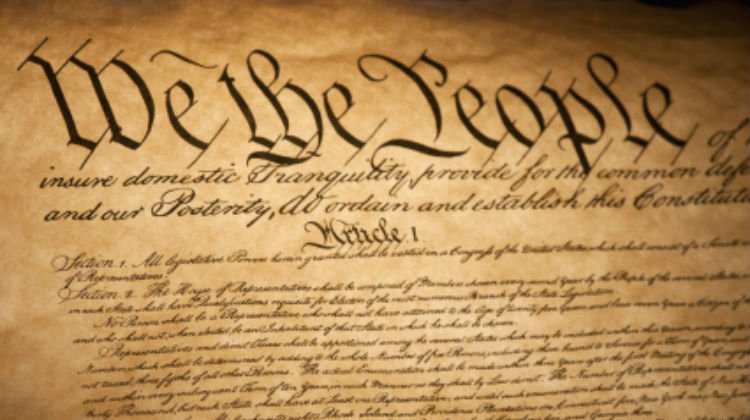 We the People of
insure domestic Tranquility, provide for the common
and our Posterity, do ordain and establish this
Article I
Section 1. All legislative Powers herein granted shall be vested in a Congress of the United States, which shall consist of a Senate
of Representatives.
Section 2. The House of Representatives shall be composed of Members chosen every second Year by the People of the several States
in each State shall have Qualifications requisite for Electors of the most numerous Branch of the State Legislature.
No Person shall be a Representative who shall not have attained to the Age of twenty five Years, and been seven Years a Citizen of
and who shall not, when elected, be an Inhabitant of that State in which he shall be chosen.
Representatives and direct Taxes shall be apportioned among the several States which may be included within this Union, according
Numbers, which shall be determined by adding to the whole Number of free Persons, including those bound to Service for a Term of Years, and
not taxed, three fifths of all other Persons. The actual Enumeration shall be made within three Years after the first Meeting of the
and within every subsequent Term of ten Years, in such Manner as they shall by Law direct. The Number of Representatives shall
thirty Thousand, but each State shall have at Least one Representative; and until such enumeration shall be made, the State of New
Rhode Island and Providence Plantations